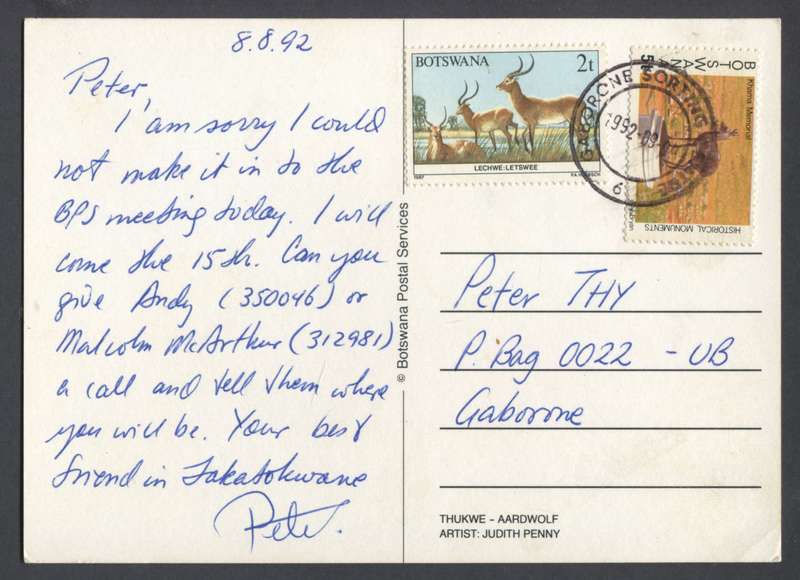 8.8.92
Peter,
I am sorry I could
not make it in to the
BPS meeting today. I will
come the 15th. Can you
give Andy (350046) or
Malcolm McArthur (312981)
a call and tell them where
you will be. Your best
friend in Takatokwane
Peter.
BOTSWANA 2t
LECHWE:LETSWEE
1987
GABORONE SORTING
1992-09-
6
BOTSWANA
Khama Memorial
HISTORICAL MONUMENTS
© Botswana Postal Services
Peter THY
P. Bag 0022 - UB
Gaborone
THUKWE - AARDWOLF
ARTIST: JUDITH PENNY